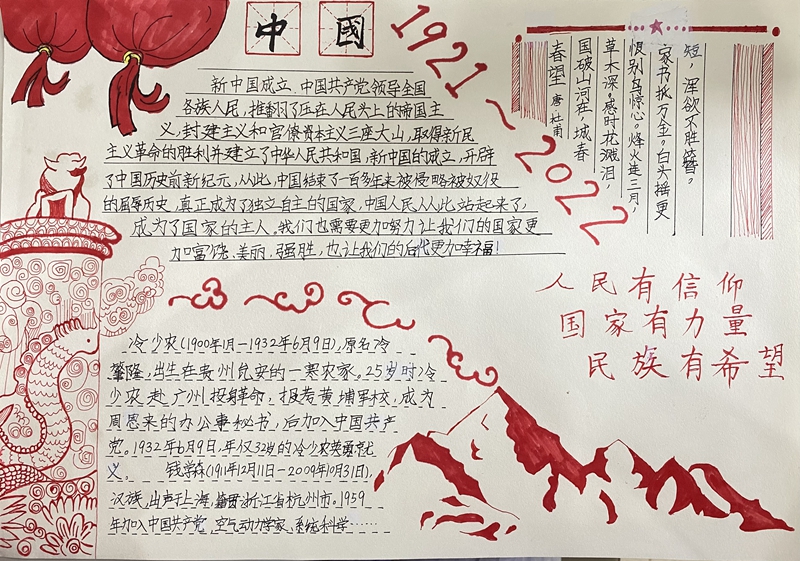 中國
1921~2022
新中国成立,中国共产党领导全国
各族人民,推翻了压在人民头上的帝国主
义,封建主义和官僚资本主义三座大山,取得新民
主义革命的胜利并建立了中华人民共和国,新中国的成立,开辟
了中国历史前新纪元,从此,中国结束了一百多年来被侵略被奴役
的屈辱历史,真正成为了独立自主的国家,中国人民从此站起来了,
成为了国家的主人。我们也需要更加努力让我们的国家更
加富饶、美丽、强胜,也让我们的后代更加幸福!
春望 唐 杜甫
国破山河在,城春
草木深。感时花溅泪,
恨别鸟惊心。烽火连三月,
家书抵万金。白头搔更
短,浑欲不胜簪。
人民有信仰
国家有力量
民族有希望
冷少农(1900年1月-1932年6月9日),原名冷
肇隆,出生在贵州瓮安的一寒农家。25岁时冷
少农赴广州投身革命,报考黄埔军校,成为
周恩来的办公事秘书,后加入中国共产
党。1932年6月9日,年仅32岁的冷少农英勇就
义。 钱学森(1911年12月11日-2009年10月31日),
汉族,出声于上海,籍贯浙江省杭州市。1959
年加入中国共产党,空气动力学家、系统科学……